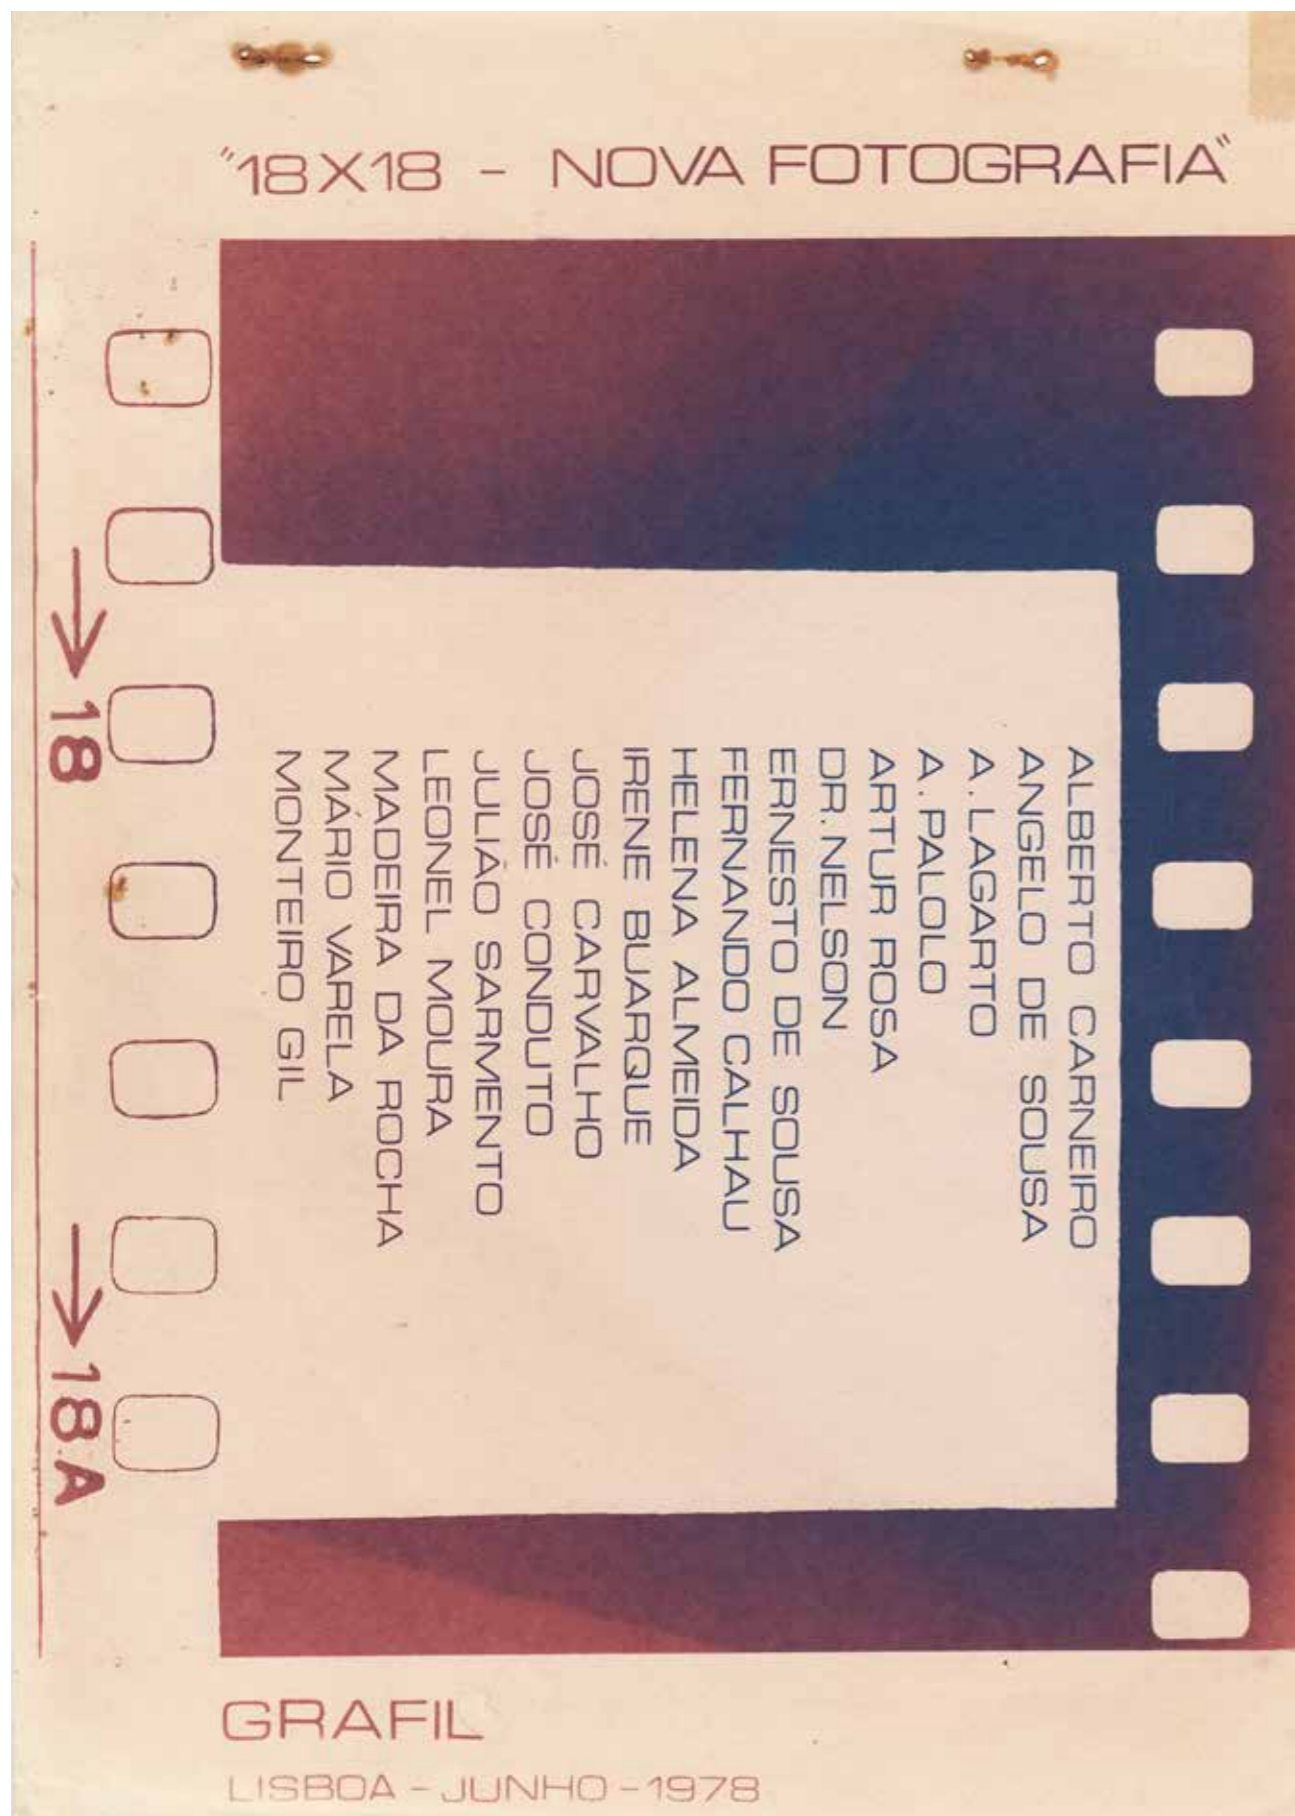 "18X18 - NOVA FOTOGRAFIA"
ALBERTO CARNEIRO
ANGELO DE SOUSA
A. LAGARTO
A. PALOLO
ARTUR ROSA
DR. NELSON
ERNESTO DE SOUSA
FERNANDO CALHAU
HELENA ALMEIDA
IRENE BUARQUE
JOSÉ CARVALHO
JOSÉ CONDUTO
JULIÃO SARMENTO
LEONEL MOURA
MADEIRA DA ROCHA
MÁRIO VARELA
MONTEIRO GIL
→ 18
→ 18A
GRAFIL
LISBOA - JUNHO - 1978